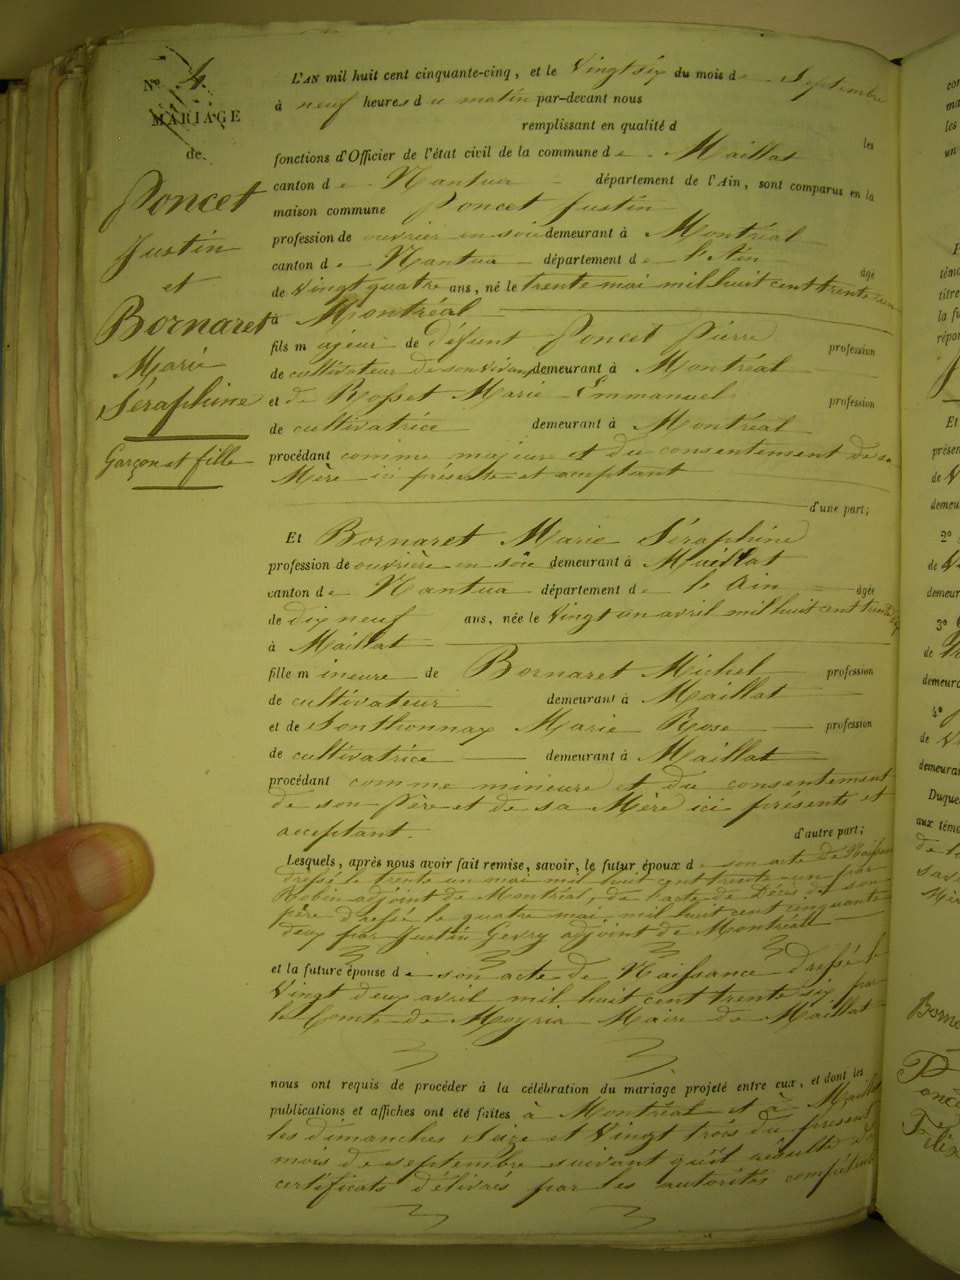 N° 4
MARIAGE
de
Poncet
Justin
et
Bornaret
Marie
Séraphine
Garçon et fille
L'AN mil huit cent cinquante-cinq, et le Vingt six du mois de Septembre
à neuf heures du matin par-devant nous
remplissant en qualité d les
fonctions d'Officier de l'état civil de la commune de Maillat
canton de Nantua département de l'Ain, sont comparus en la
maison commune Poncet Justin
profession de ouvrier en soie demeurant à Montréal
canton de Nantua département de l'Ain âgé
de Vingt quatre ans, né le trente mai mil huit cent trente un
à Montréal
fils majeur de défunt Poncet Pierre profession
de cultivateur de son vivant demeurant à Montréal
et de Rosset Marie Emmanuel profession
de cultivatrice demeurant à Montréal
procédant comme majeur et du consentement de sa
Mère ici présente et acceptant
d'une part;
Et Bornaret Marie Séraphine
profession de ouvrière en soie demeurant à Maillat
canton de Nantua département de l'Ain âgée
de dix neuf ans, née le Vingt un avril mil huit cent trente six
à Maillat
fille mineure de Bornaret Michel profession
de cultivateur demeurant à Maillat
et de Sonthonnax Marie Rose profession
de cultivatrice demeurant à Maillat
procédant comme mineure et du consentement
de son Père et de sa Mère ici présents et
acceptant.
d'autre part;
Lesquels, après nous avoir fait remise, savoir, le futur époux de son acte de Naissance
dressé le trente un mai mil huit cent trente un par
Robin adjoint de Montréal, de l'acte de Décès de son
père dressé le quatre mai mil huit cent cinquante
deux par Justin Gevry adjoint de Montréal
et la future épouse de son acte de Naissance dressé le
Vingt deux avril mil huit cent trente six par
le Comte de Moyria Maire de Maillat
nous ont requis de procéder à la célébration du mariage projeté entre eux, et dont les
publications et affiches ont été faites à Montréal et à Maillat
les dimanches Seize et Vingt trois du présent
mois de septembre suivant qu'il résulte des
certificats délivrés par les autorités compétentes